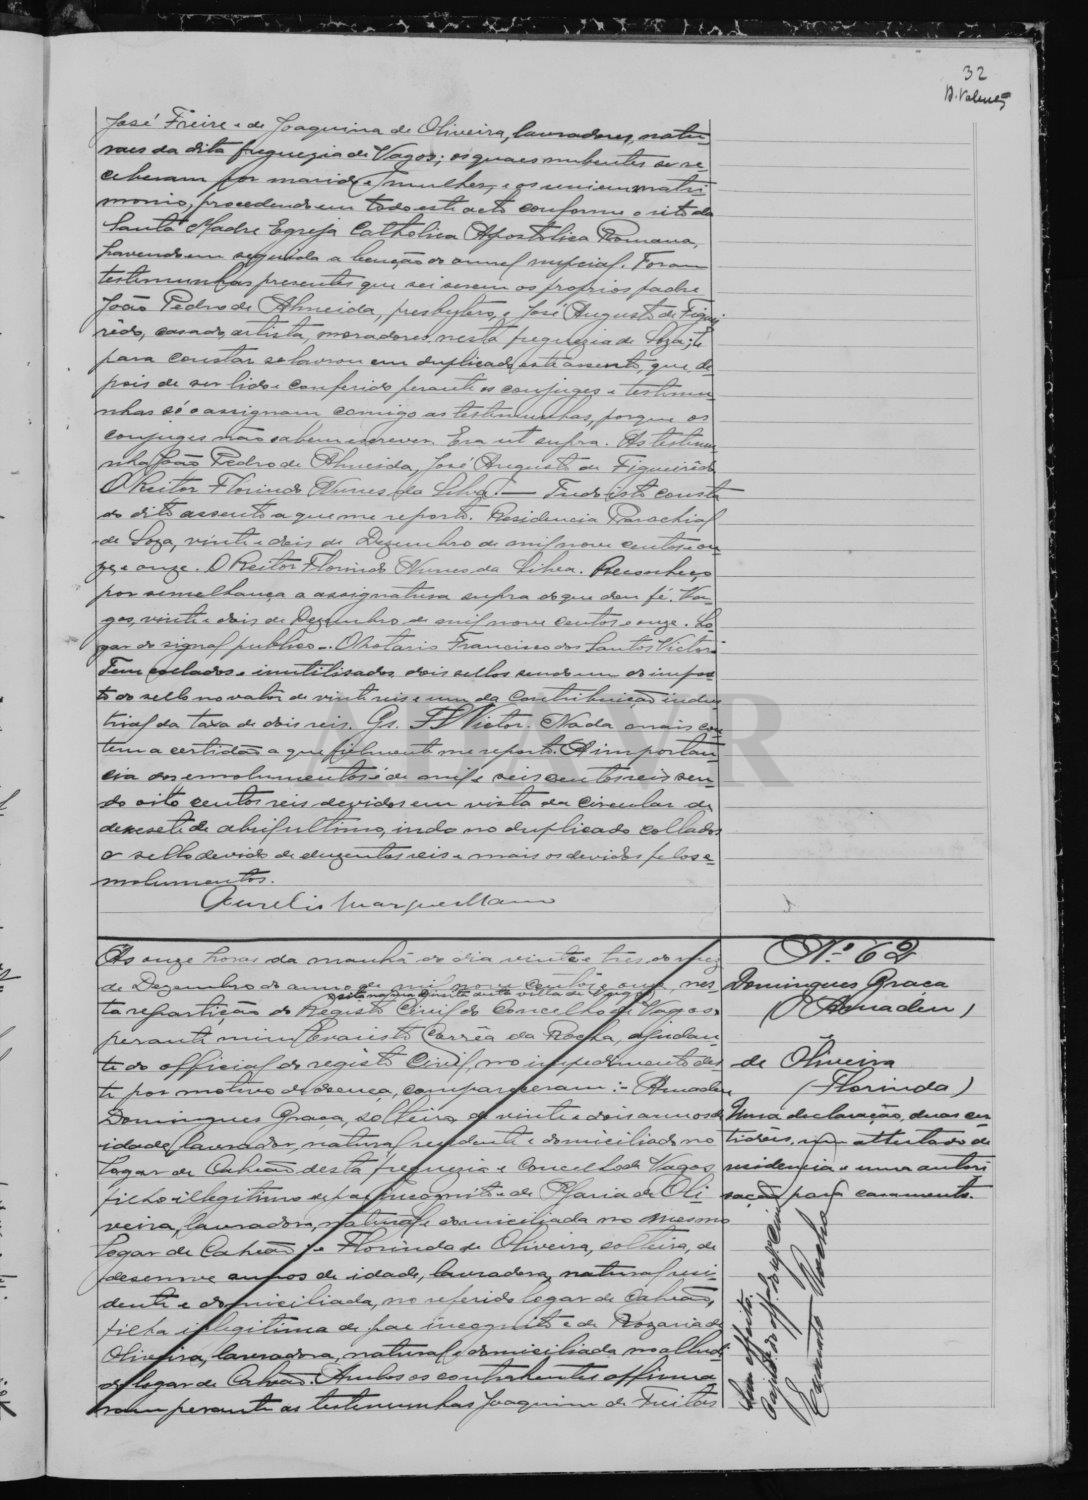 32
A. Valente
José Freire e de Joaquina de Oliveira, lavradores, natu-
raes da dita freguezia de Vagos; os quaes nubentes se re-
ceberam por marido e mulher, e os uni em matri
monio, procedendo em todo este acto conforme o rito da
Santa Madre Egreja Catholica Apostolica Romana,
havendo em seguida a benção do annel nupcial. Foram
testimunhas presentes que sei serem os proprios padre
João Pedro de Almeida, presbytero, e José Augusto de Figuei
rêdo, casado, artista, moradores nesta freguezia de Soza; e
para constar se lavrou em duplicado este assento, que de-
pois de ser lido e conferido perante os conjuges e testimu-
nhas só o assignam comigo as testimunhas, porque os
conjuges não sabem escrever. Era ut supra. As testimu
nhas João Pedro de Almeida, José Augusto de Figueirêdo
O Reitor Florindo Nunes da Silva. — Tudo isto consta
do dito assento a que me reporto. Residencia Parochial
de Soza, vinte e dois de Dezembro de mil nove centos e on-
ze e onze. O Reitor Florindo Nunes da Silva. Reconheço
por semelhança a assignatura supra do que dou fé. Va-
gos, vinte e dois de Dezembro de mil nove centos e onze. Lo-
gar do signal publico. O Notario Francisco dos Santos Victor
Tem collados e inutilisados dois sellos sendo um do impos
to do sello no valor de vinte reis e um da contribuição indus
trial da taxa de dois reis. Gs. FS Victor. Nada mais con
tem a certidão a que fielmente me reporto. A importan-
cia dos emolumentos é de mil e seis centos reis sen-
do oito centos reis devidos em vista da circular de
desesete de abril ultimo, indo no duplicado collados
o sello devido de duzentos reis e mais os devidos pelos e-
molumentos.
Aurelio Marques Mano
As onze horas da manhã do dia vinte e três do mez
de Dezembro do anno de mil nove centos e onze, nes-
ta repartição do Registo Civil do Concelho de Vagos
perante mim Evaristo Corrêa da Rocha, ajudan-
te do official do registo Civil, no impedimento des-
te por motivo de doença, compareceram:- Amadeu
Domingues Graça, solteiro, de vinte e dois annos de
idade, lavrador, natural, residente e domiciliado no
logar de Calvão desta freguezia e Concelho de Vagos
filho illegitimo de pae incognito e de Maria de Oli
veira, lavradora, natural e domiciliada no mesmo
logar de Calvão; e Florinda de Oliveira, solteira, de
desenove annos de idade, lavradora, natural, resi-
dente e domiciliada, no referido logar de Calvão,
filha illegitima de pae incognito e de Rozaria de
Oliveira, lavradora, natural e domiciliada no allud
do logar de Calvão. Ambos os contrahentes affirma-
ram perante as testimunhas Joaquim de Freitas
Nº 62
Domingues Graça
(Amadeu)
de Oliveira
(Florinda)
Numa declaração, duas cer
tidões, um attestado de
residencia e uma autori
sação para casamento.
Sem effeito.
O ajude do off. do regº Civil
Evaristo Rocha